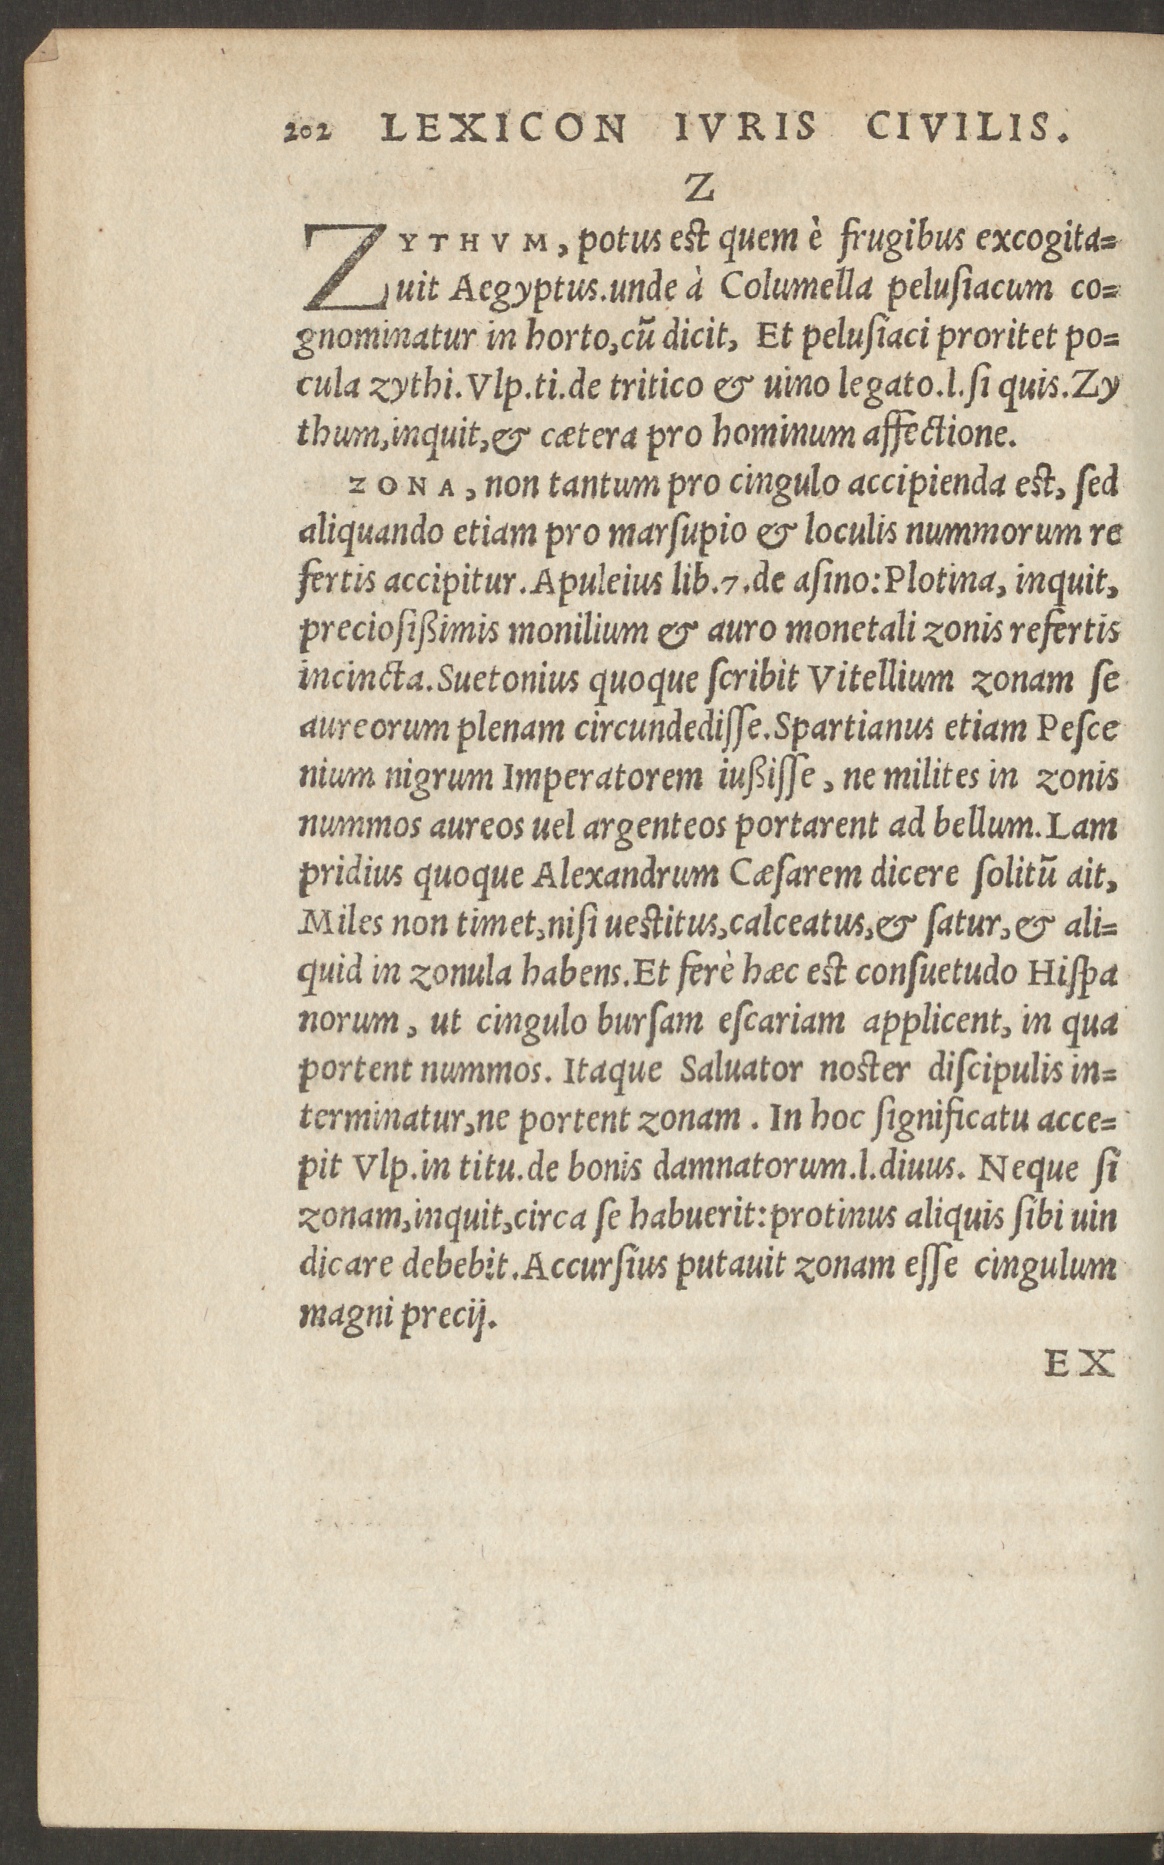 202 LEXICON IVRIS CIVILIS.
Z
ZYTHVM, potus est quem è frugibus excogita=
uit Aegyptus.unde à Columella pelusiacum co=
gnominatur in horto,cũ dicit, Et pelusiaci proritet po=
cula zythi.Vlp.ti.de tritico & uino legato.l.si quis.Zy
thum,inquit,& cætera pro hominum affectione.
ZONA, non tantum pro cingulo accipienda est, sed
aliquando etiam pro marsupio & loculis nummorum re
fertis accipitur.Apuleius lib.7.de asino:Plotina, inquit,
preciosißimis monilium & auro monetali zonis refertis
incincta.Suetonius quoque scribit Vitellium zonam se
aureorum plenam circundedisse.Spartianus etiam Pesce
nium nigrum Imperatorem iußisse, ne milites in zonis
nummos aureos uel argenteos portarent ad bellum.Lam
pridius quoque Alexandrum Cæsarem dicere solitũ ait,
Miles non timet,nisi uestitus,calceatus,& satur,& ali=
quid in zonula habens.Et ferè hæc est consuetudo Hispa
norum, ut cingulo bursam escariam applicent, in qua
portent nummos. Itaque Saluator noster discipulis in=
terminatur,ne portent zonam. In hoc significatu acce=
pit Vlp.in titu.de bonis damnatorum.l.diuus. Neque si
zonam,inquit,circa se habuerit:protinus aliquis sibi uin
dicare debebit.Accursius putauit zonam esse cingulum
magni precij.
EX